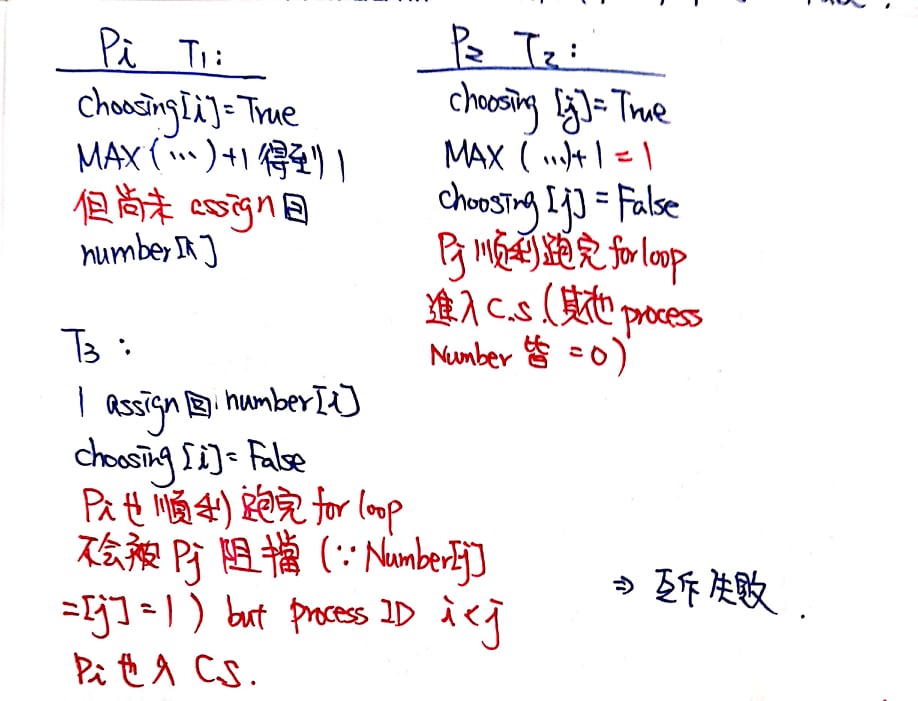 Pi T1:
choosing[i]=True
MAX(…)+1 得到1
但尚未 assign回
number[i]
P2 T2:
choosing [j]=True
MAX (…)+1 = 1
choosing[j]=False
Pj 順利跑完 for loop
進入C.S.(其他process
Number 皆 =0)
T3:
1 assign回 number[i]
choosing[i]=False
Pi也順利跑完 for loop
不会被 Pj 阻擋 (∵Number[j]
=[j]=1) but process ID i<j
Pi也入 C.S.
⇒ 互斥失敗.